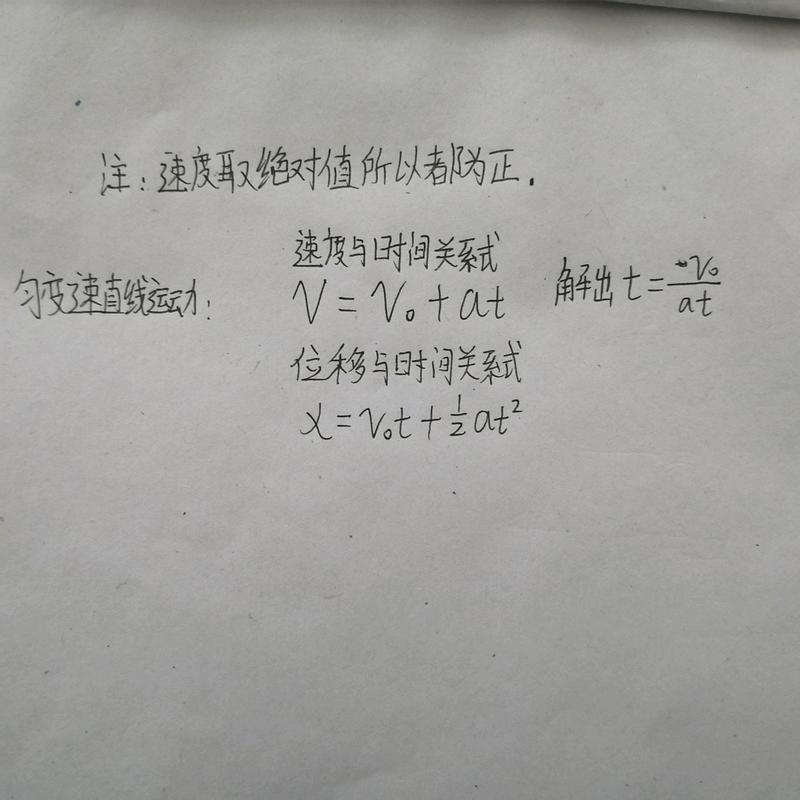 注：速度取绝对值所以都为正.
速度与时间关系式
匀变速直线运动： V = V₀ + at 解出 t = -V₀/at
位移与时间关系式
x = v₀t + ½at²